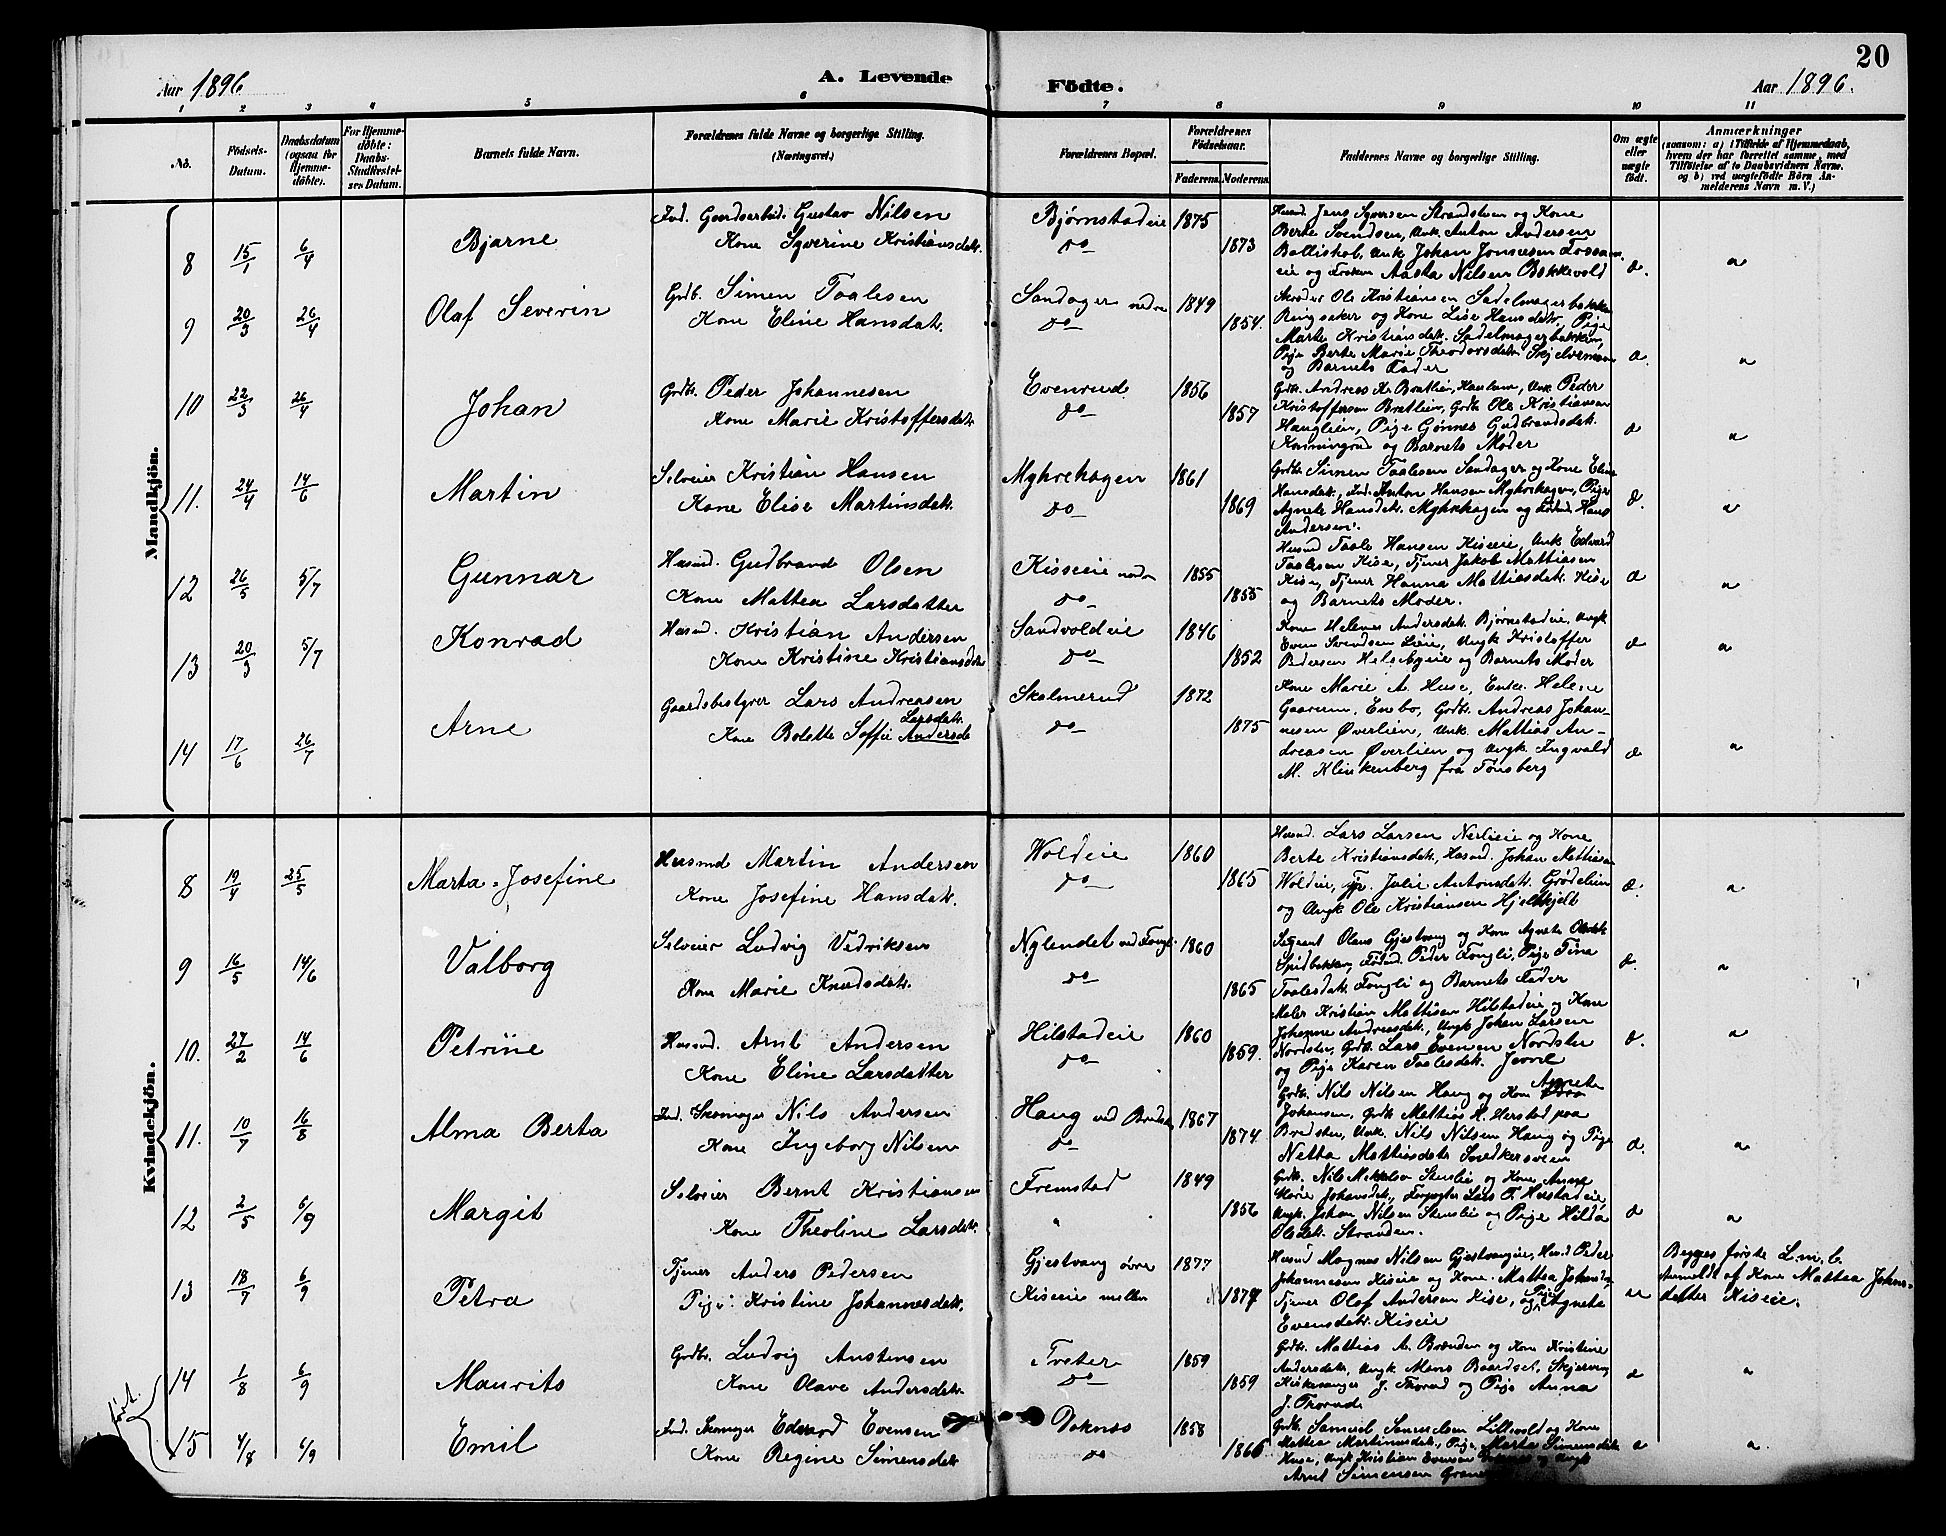 20
Aar 1896. A. Levende Fødte. Aar 1896.
1 2 3 4 5 6 7 8 9 10 11
No. Fødsels-Datum. Daabsdatum (ogsaa for Hjemmedøbte). For Hjemmedøbte: Daabs-Stadfæstelses Datum. Barnets fulde Navn. Forældrenes fulde Navne og borgerlige Stilling. (Næringsvei.) Forældrenes Bopæl. Forældrenes Fødselsaar. Faderens. Moderens. Faddernes Navne og borgerlige Stilling. Om ægte eller uægte født. Anmærkninger (saasom: a) i Tilfælde af Hjemmedaab, hvem der har forrettet samme, med Tilføielse af to Daabsvidners Navne, og b) ved uægtefødte Børn Anmelderens Navn m. V.)
Mandkjön.
8 15/1 6/4 Bjarne
Ind. Gaardsarbid. Gustav Nilsen
Kone Syverine Kristiansdatr.
Bjørnstadeie do 1875 1873
Husmd. Jens Syversen Strandstuen og Kone
Berte Svendsen, Unk. Anton Andersen
Ballishol, Unk Johan Jonsen
eie og Frøken Aasta Nilsen Bekkevold
æ. "
9 20/3 26/4 Olaf Severin
Grdb. Simen Taalesen
Kone Eline Hansdatr.
Sandager nedre do 1849 1854.
Skræder Ole Kristiansen Sadelmagerbakken
Ringsaker og Kone Lise Hansdatr., Pige
Marte Kristiansdatr. Sadelmagerbakken,
Pige Berte Marie Theodorsdatr.
og Barnets Fader
æ. "
10 22/3 26/4 Johan
Grdb. Peder Johannesen
Kone Marie Kristoffersdatr.
Evenrud do 1856 1857
Grdb. Andreas Kr. Bratlien, Unk. Peder
Kristoffersen Bratlien, Grdb. Ole Kristiansen
Hauglien, Pige Gønnes Gudbrandsdatr.
og Barnets Moder
æ "
11. 24/4 14/6 Martin
Selveier Kristian Hansen
Kone Elise Martinsdatr.
Myhrehagen do 1861 1869
Grdb. Simen Taalesen Sandager og Kone Eline
Hansdatr., Ind. Anton Hansen Myhrehagen, Pige
Agnete Hansdatr. Myhrehagen og Hans
Andersen.
æ. "
12 26/5 5/7 Gunnar
Husmd. Gudbrand Olsen
Kone Mattea Larsdatter
Kiseeie nedre do 1855 1855
Husmd Taale Hansen Kiseeie, Unk Edvard
Taalesen Kise, Tjener Jakob Mattiasen
Kise, Tjener Hanna Mattiasdatr. Kise
og Barnets Moder.
æ "
13 20/3 5/7 Konrad
Husmd. Kristian Andersen
Kone Kristine Kristiansdatr
Sandvoldeie do 1846 1852
Kone Helene Andersdatr. Bjørnstadeie, Ungk
Even Svendsen Lieie, Ungk Kristoffer
Pedersen og Barnets Moder
æ "
14 17/6 26/7 Arne
Gaardsbestyrer Lars Andreasen
Kone Bolette Soffie Andersd Larsdatr.
Skalmerud do 1872 1875
Kone Marie A. Huse, Enke Helene
Gaarum, Enebo, Grdb. Andreas Johan-
nesen Øverlien, Unk. Mattias An-
dreasen Øverlien og Ungk Ingvald
M. Klinkenberg fra Tønsberg
æ "
Kvindekjön.
8 19/4 25/5 Marta Josefine
Husmd Martin Andersen
Kone Josefine Hansdatr.
Woldeie do 1860 1865
Husmd. Lars Larsen Nerlieie og Kone
Berte Kristiansdatr., Husmd. Johan Mattiasen
Woldeie, Julie Antonsdatr. Grødelien
og Ungk Ole Kristiansen Hjelskjelt
æ. "
9 16/5 14/6 Valborg
Selveier Ludvig Vedriksen
Kone Marie Knudsdatr.
Nylendet ved Fougli do 1860 1865
Sergeant Olaus Gjestvang og Kone Agnete Olsdatr
Spidbekken, Peder Fougli, Pige Tina
Taalesdatr. Fougli og Barnets Fader
æ. "
10. 27/2 14/6 Petrine
Husmd. Arnt Andersen
Kone Eline Larsdatter
Hilstadeie do 1860 1859.
Maler Kristian Mattisen Hilstadeie og Kone
Johanne Andreasdatr., Ungk Johan Larsen
Nordsten, Grdb. Lars Evensen Nordsten
og Pige Karen Taalesdatr.
æ. "
11. 10/7 16/8 Alma Berta
Ind. Skomager Nils Andersen
Kone Ingeborg Nilsen
Haug ved 1867 1874.
Grdb. Nils Nilsen Haug og Kone Agnete
Johansen, Grdb Mattias H. Herstad paa
Bredsten, Unk. Nils Nilsen Haug og Pige
Netta Mattiasdatr Snedkersveen
æ. "
12 2/5 6/9 Margit
Selveier Bernt Kristiansen
Kone Theoline Larsdatr.
Fremstad " 1849 1856
Grdb. Nils Stenslie og Kone Anne
Marie Johansdatr., Lars T. Hustadeie,
Ungk. Johan Nilsen Stenslie og Pige Hilda
Olsdatr. Stranden.
æ "
13 18/7 6/9 Petra
Tjener Anders Pedersen
Pige Kristine Johannesdatr.
Gjestvang øvre
Kiseeie mellem 1877 1877
Husmd Magnus Nilsen Gjestvangeie, Husmd Peder
Johannesen Kiseeie og Kone Mattea Johansdr,
Tjener Olaf Andersen Kise, og Pige Agnete
Evensdatr. Kiseeie
u
Begges første L.m. b.
Anmeldt af Kone Mattea Johns-
datter Kiseeie.
14 1/8 6/9 Maurits
Grdbr. Ludvig Austensen
Kone Olave Andersdatr.
Treter do 1859 1859
Grdb. Mattias A. Brænden og Kone Kristine
Andersdatr., Ungk Mons Baardset,
Kirkesanger J. Thorud og Pige Anna
J. Thorud.
æ "
15 4/8 6/9 Emil
Ind. Skomager Edvard Evensen
Kone Regine Simensdatr
Doknæs do 1858 1866
Grdb. Samuel Samuelsen Lillevold og Kone
Mattea Martinusdatr., Pige Marta Simensdatr
Huse, Ungk Kristian Evensen og Ungk
Arnt Simensen
æ "